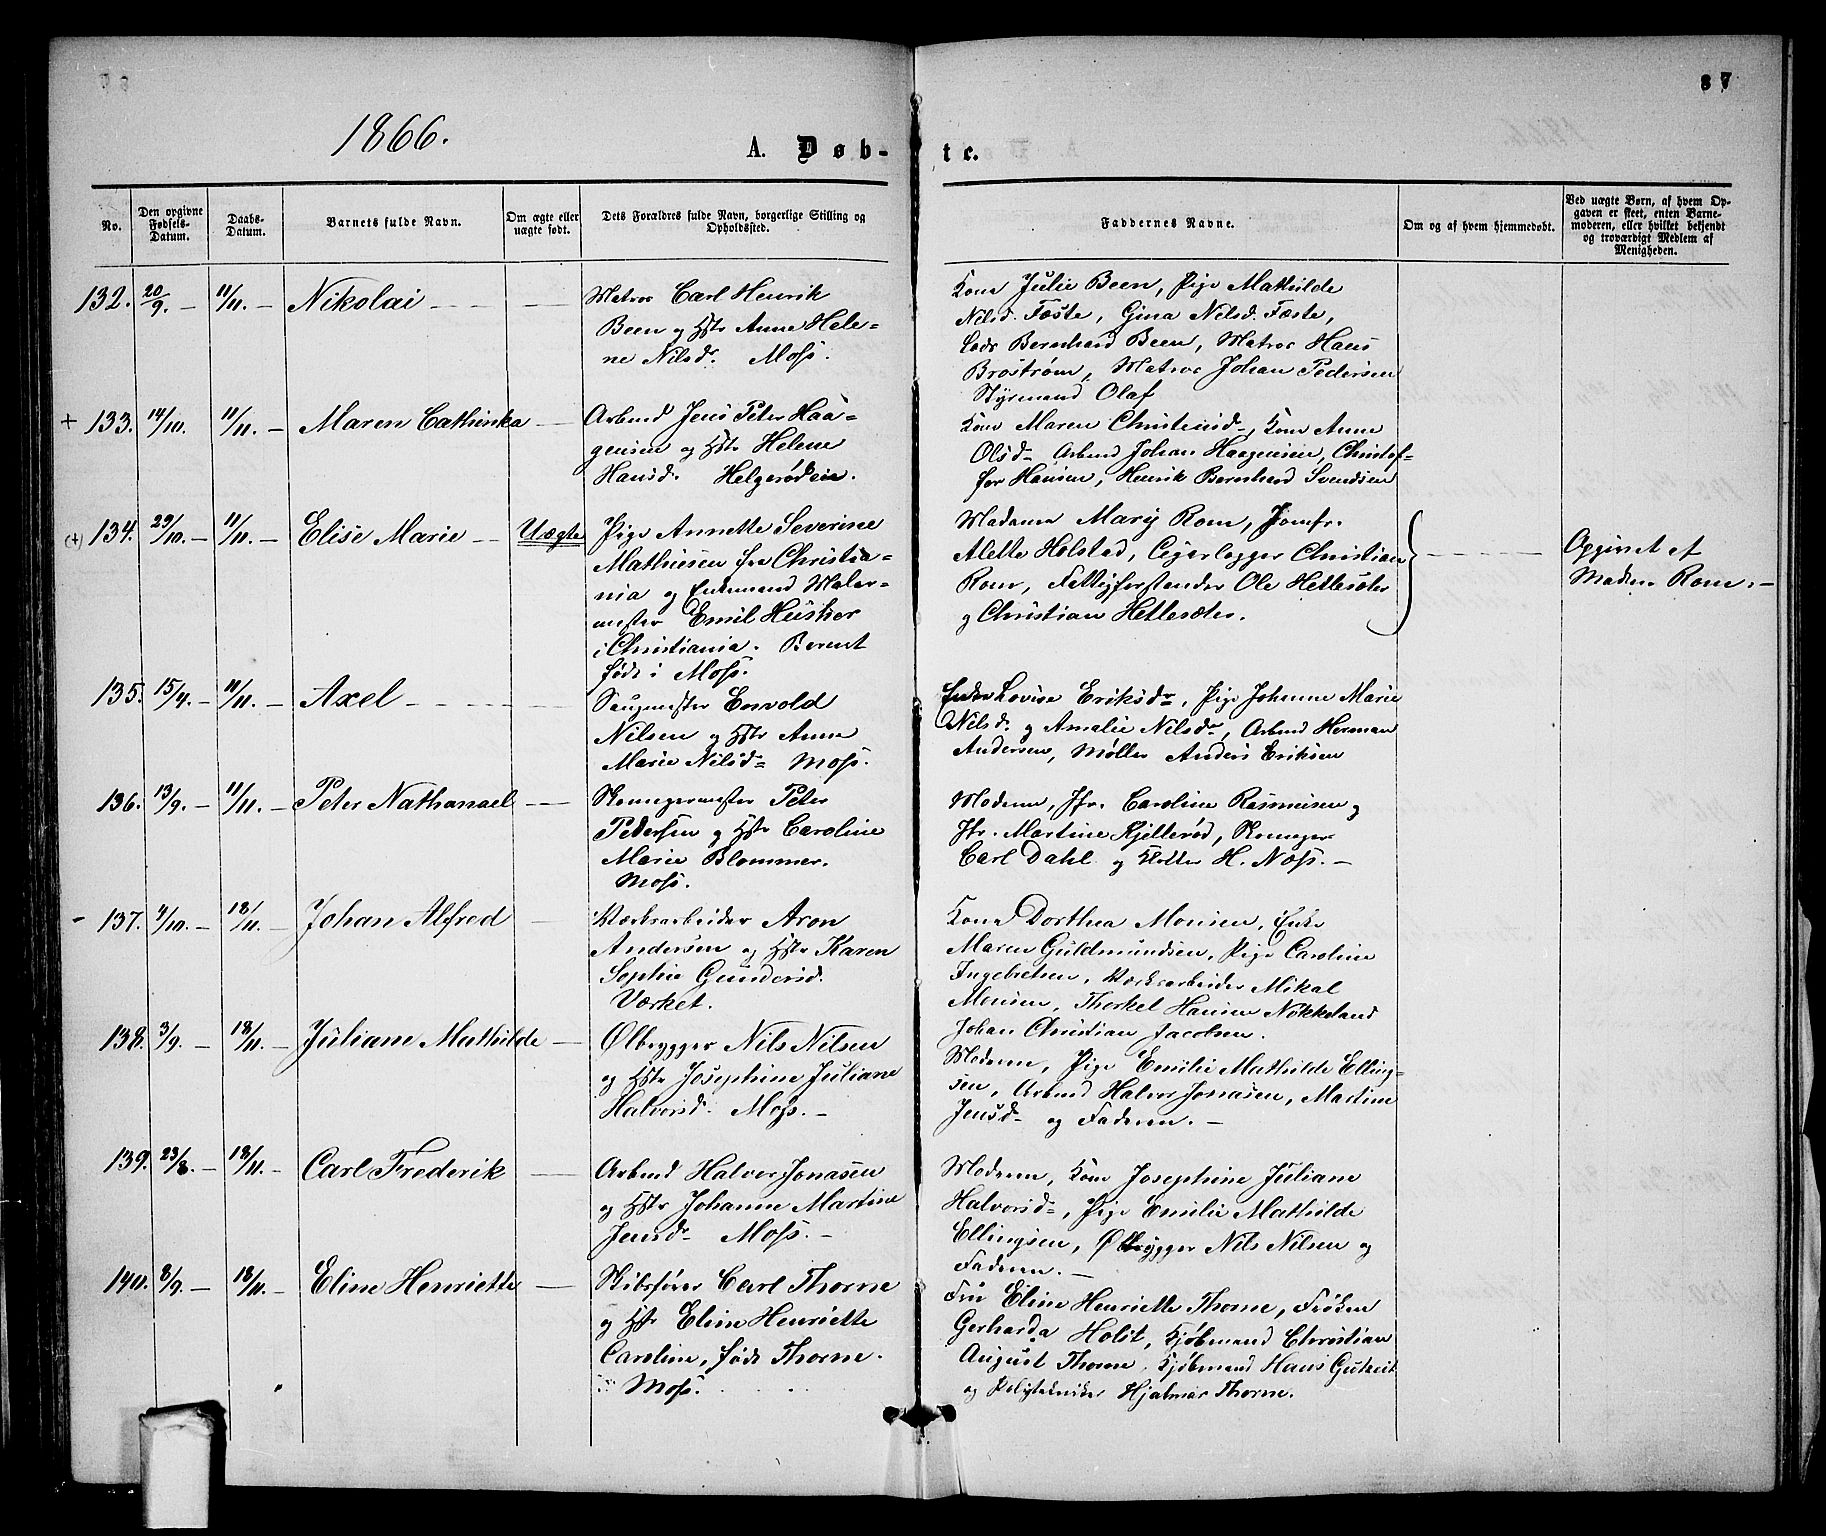 87
1866.
A. Døb-
te.
No.
Den opgivne Fødsels-Datum.
Daabs-Datum.
Barnets fulde Navn.
Om ægte eller uægte født.
Dets Forældres fulde Navn, borgerlige Stilling og Opholdssted.
Faddernes Navne.
Om og af hvem hjemmedøbt.
Ved uægte Børn, af hvem Op-
gaven er skeet, enten Barne-
moderen, eller hvilket bekjendt
og troværdigt Medlem af
Menigheden.
132. 20/9. – 11/11. – Nikolai
Matros Carl Henrik
Been og Hstr Anne Hele-
ne Nilsdr. Moss.
Kone Julie Been, Pige Mathilde
Nilsd. Fæste, Gina Nilsd. Fæste,
Lods Bernhard Been, Matros Hans
Brostrøm, Matros Johan Pedersen
Styrmand Olaf
+ 133. 14/10. 11/11. – Maren Cathinka
Arbmd Jens Peter Haa-
gensen og Hstr Helene
Hansd. Helgerødeie.
Kone Maren Christensd., Kone Anne
Olsd. Arbmd Johan Haagensen, Christof-
fer Hansen, Henrik Bernhard Svendsen
(+) 134. 29/10. – 11/11. – Elise Marie – Uægte
Pige Annette Severine
Mathiesen fra Christia-
nia og Enkemand Maler-
mester Emil Husher
i Christiania. Barnet
født i Moss.
Madame Mary Rom, Jomfr.
Alette Holstad, Cigarlægger Christian
Rom, Fattigforstander Ole Hetlesæter
og Christian Hetlesæter.
Opgivet af
Madm. Rom. –
135. 15/4. – 11/11. – Axel
Saugmester Envold
Nilsen og Hstr Anne
Marie Nilsd. Moss.
Enke Lovise Eriksdr., Pige Johanne Marie
Nilsd. og Amalie Nilsdr., Arbmd Herman
Andersen, Møller Anders Eriksen
136. 13/9. – 11/11. – Peter Nathanael
Skomagermester Peter
Pedersen og Hstr Caroline
Marie Blommer.
Moss.
Moderen, Jfr. Caroline Rasmusen og
Jfr. Martine Kjellerød, Skomager
Carl Dahl og H. Næss. –
- 137. 4/10. – 18/11. – Johan Alfred
Værksarbeider Aron
Andersen og Hstr Karen
Sophie Gundersd.
Værket.
Kone Dorthea Monsen, Enke
Maren Guldmundsen, Pige Caroline
Ingebretsen, Værksarbeider Mikal
Monsen, Thorkel Hansen Nøkkeland
Johan Christian Jacobsen.
138. 3/9. – 18/11. – Juliane Mathilde –
Ølbrygger Nils Nilsen
og Hstr Josephine Juliane
Halvorsd. Moss. –
Moderen, Pige Emilie Mathilde Elling-
sen, Arbmd Halvor Jonasen, Martine
Jensd. og Faderen. –
139. 23/8. – 18/11. – Carl Frederik
Arbmd Halvor Jonasen
og Hstr Johanne Martine
Jensdr. Moss. –
Moderen, Kone Josephine Juliane
Halvorsd., Pige Emilie Mathilde
Ellingsen, Ølbrygger Nils Nilsen og
Faderen. –
140. 8/9. – 18/11. – Eline Henriette –
Skibsfører Carl Thorne
og Hstr Eline Henriette
Caroline, født Thorne.
Moss.
Fru Eline Henriette Thorne, Frøken
Gerharda Holst, Kjøbmand Christian
August Thorne, Kjøbmand Hans Gutzeit
og Polytekniker Hjalmar Thorne.